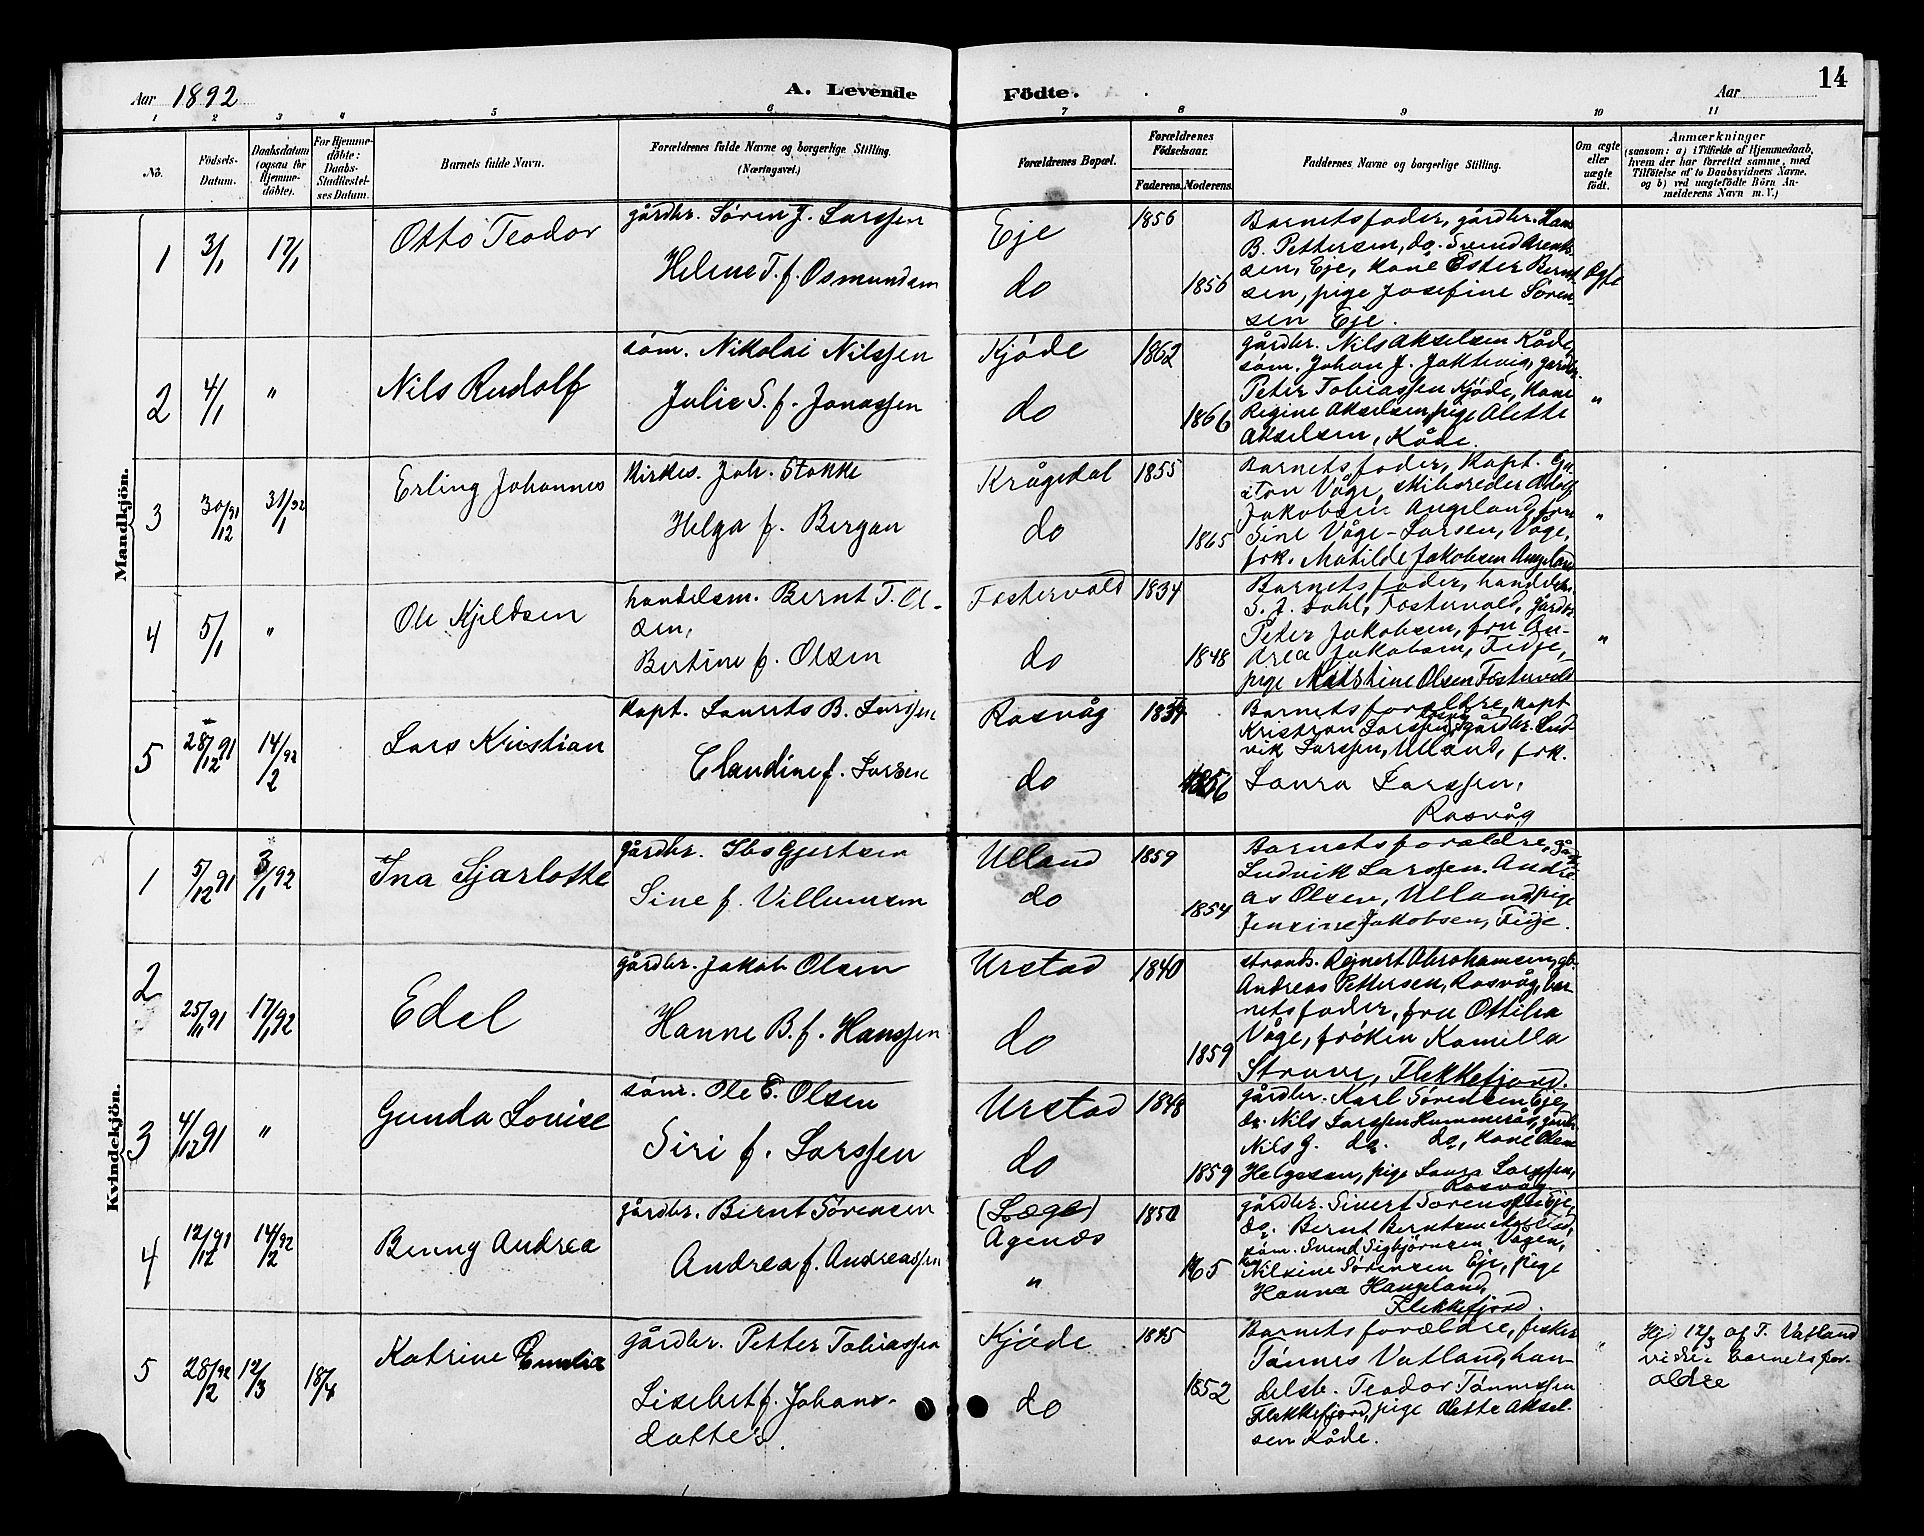 Aar 1892
A. Levende Födte.
Aar
14
1 2 3 4 5 6 7 8 9 10 11
No.
Födsels-Datum.
Daabsdatum (ogsaa for Hjemmedöbte).
For Hjemmedöbte: Daabs-Stadfæstelses Datum.
Barnets fulde Navn.
Forældrenes fulde Navne og borgerlige Stilling. (Næringsvei.)
Forældrenes Bopæl.
Forældrenes Födselsaar.
Faderens. Moderens.
Faddernes Navne og borgerlige Stilling.
Om ægte eller uægte födt.
Anmærkninger
(saasom: a) i Tilfælde af Hjemmedaab, hvem der har forrettet samme, med Tilföielse af to Daabsvidners Navne, og b) ved uægtefödte Börn Anmelderens Navn m. V.)
Mandkjön.
1 3/1 17/1 Otto Teodor
gårdbr. Sören J. Larssen
Helene T. f. Osmundsen
Eje 1856
do 1856
Barnets fader, gårdbr. Hans
B. Pettersen, do. Svend Arent-
sen, Eje, kone Ester Bernt-
sen, pige Josefine Sören-
sen Eje.
Ægte
2 4/1 " Nils Rudolf
söm. Nikolai Nilssen
Julie S. f. Jonassen
Kjöde 1862
do 1866
gårdbr. Nils Akselsen Kåde,
söm. Johan J. Jaktevig, gårdbr.
Peter Tobiassen Kjöde, kone
Regine Akselsen, pige Alette
Akselsen, Kåde.
"
3 30/12 91 31/1 92 Erling Johannes
Kirkes. Joh. Stokke
Helga f. Bergan
Krågedal 1855
do 1865
Barnets fader, Kapt. Ga-
ston Våge, skibsreder Adolf
Jakobsen Angeland, fru
Sine Våge-Larsen, Våge,
frk. Matilde Jakobsen Angeland
"
4 5/1 " Ole Kjeldsen
handelsm. Bernt T. Ol-
sen,
Bertine f. Olsen
Fostervold 1834
do 1848
Barnets fader, handelsbr.
S. J. Dahl, Fostervold, gårdbr.
Peter Jakobsen, fru An-
drea Jakobsen, Fedje,
pige Olsen Fostervold
"
5 28/12 91 14/2 92 Lars Kristian
Kapt. Laurits B. Larssen
Claudine f. Larsen
Rasvåg 1854
do 1856
Barnets forældre, kapt
Kristian Larssen, gårdbr. Lud-
vik Larssen, Ulland, frk.
Laura Larssen,
Rasvåg
Kvindekjön.
1 5/12 91 3/1 92 Ina Sjarlotte
gårdbr. Ibs Gjertsen
Sine f. Villumsen
Ulland 1859
do 1854
Barnets forældre, gårdbr.
Ludvik Larssen. Andre-
as Olsen, Ulland, pige
Jensine Jakobsen, Fedje.
2 25/11 91 17/1 92 Edel
gårdbr. Jakob Olsen
Hanne B. f. Hanssen
Urstad 1840
do 1859
strands. Rejnert Abrahamsen, gb.
Andreas Pettersen, Rasvåg, bar-
nets fader, fru Ottilia
Våge, fröken Kamilla
Straum, Flekkefjord.
3 4/12 91 " Gunda Louise
söm. Ole E. Olsen
Siri f. Larssen
Urstad 1848
do 1859
gårdbr. Karl Sörensen Eje,
do. Nils Larssen Hummerås, gårdbr.
Nils G. do. do, kone Olene
Helgesen, pige Laura Larssen,
Rasvåg
4 12/12 91 14/2 92 Benny Andrea
gårdbr. Bernt Sörensen
Andrea f. Andreassen
(Læge) 1850
Agenæs
" 1865
gårdbr. Sivert Sörensen Eje,
do. Bernt Berntsen
söm. Svend Sigbjörnsen Vågen,
Nilsine Sörensen Eje, pige
Hanna Haugeland,
Flekkefjord.
5 28/2 92 12/3 18/4 Katrine Emilie
gårdbr. Petter Tobiassen
Lisebet f. Johans-
datter.
Kjöde 1845
do 1852
Barnets forældre, fisker
Tönnes Vatland, han-
delsb. Teodor Tönnessen
Flekkefjord, pige Alette Aksel-
sen Kåde.
"
Hjd 12/3 af T. Vatland
vidne: barnets for-
ældre